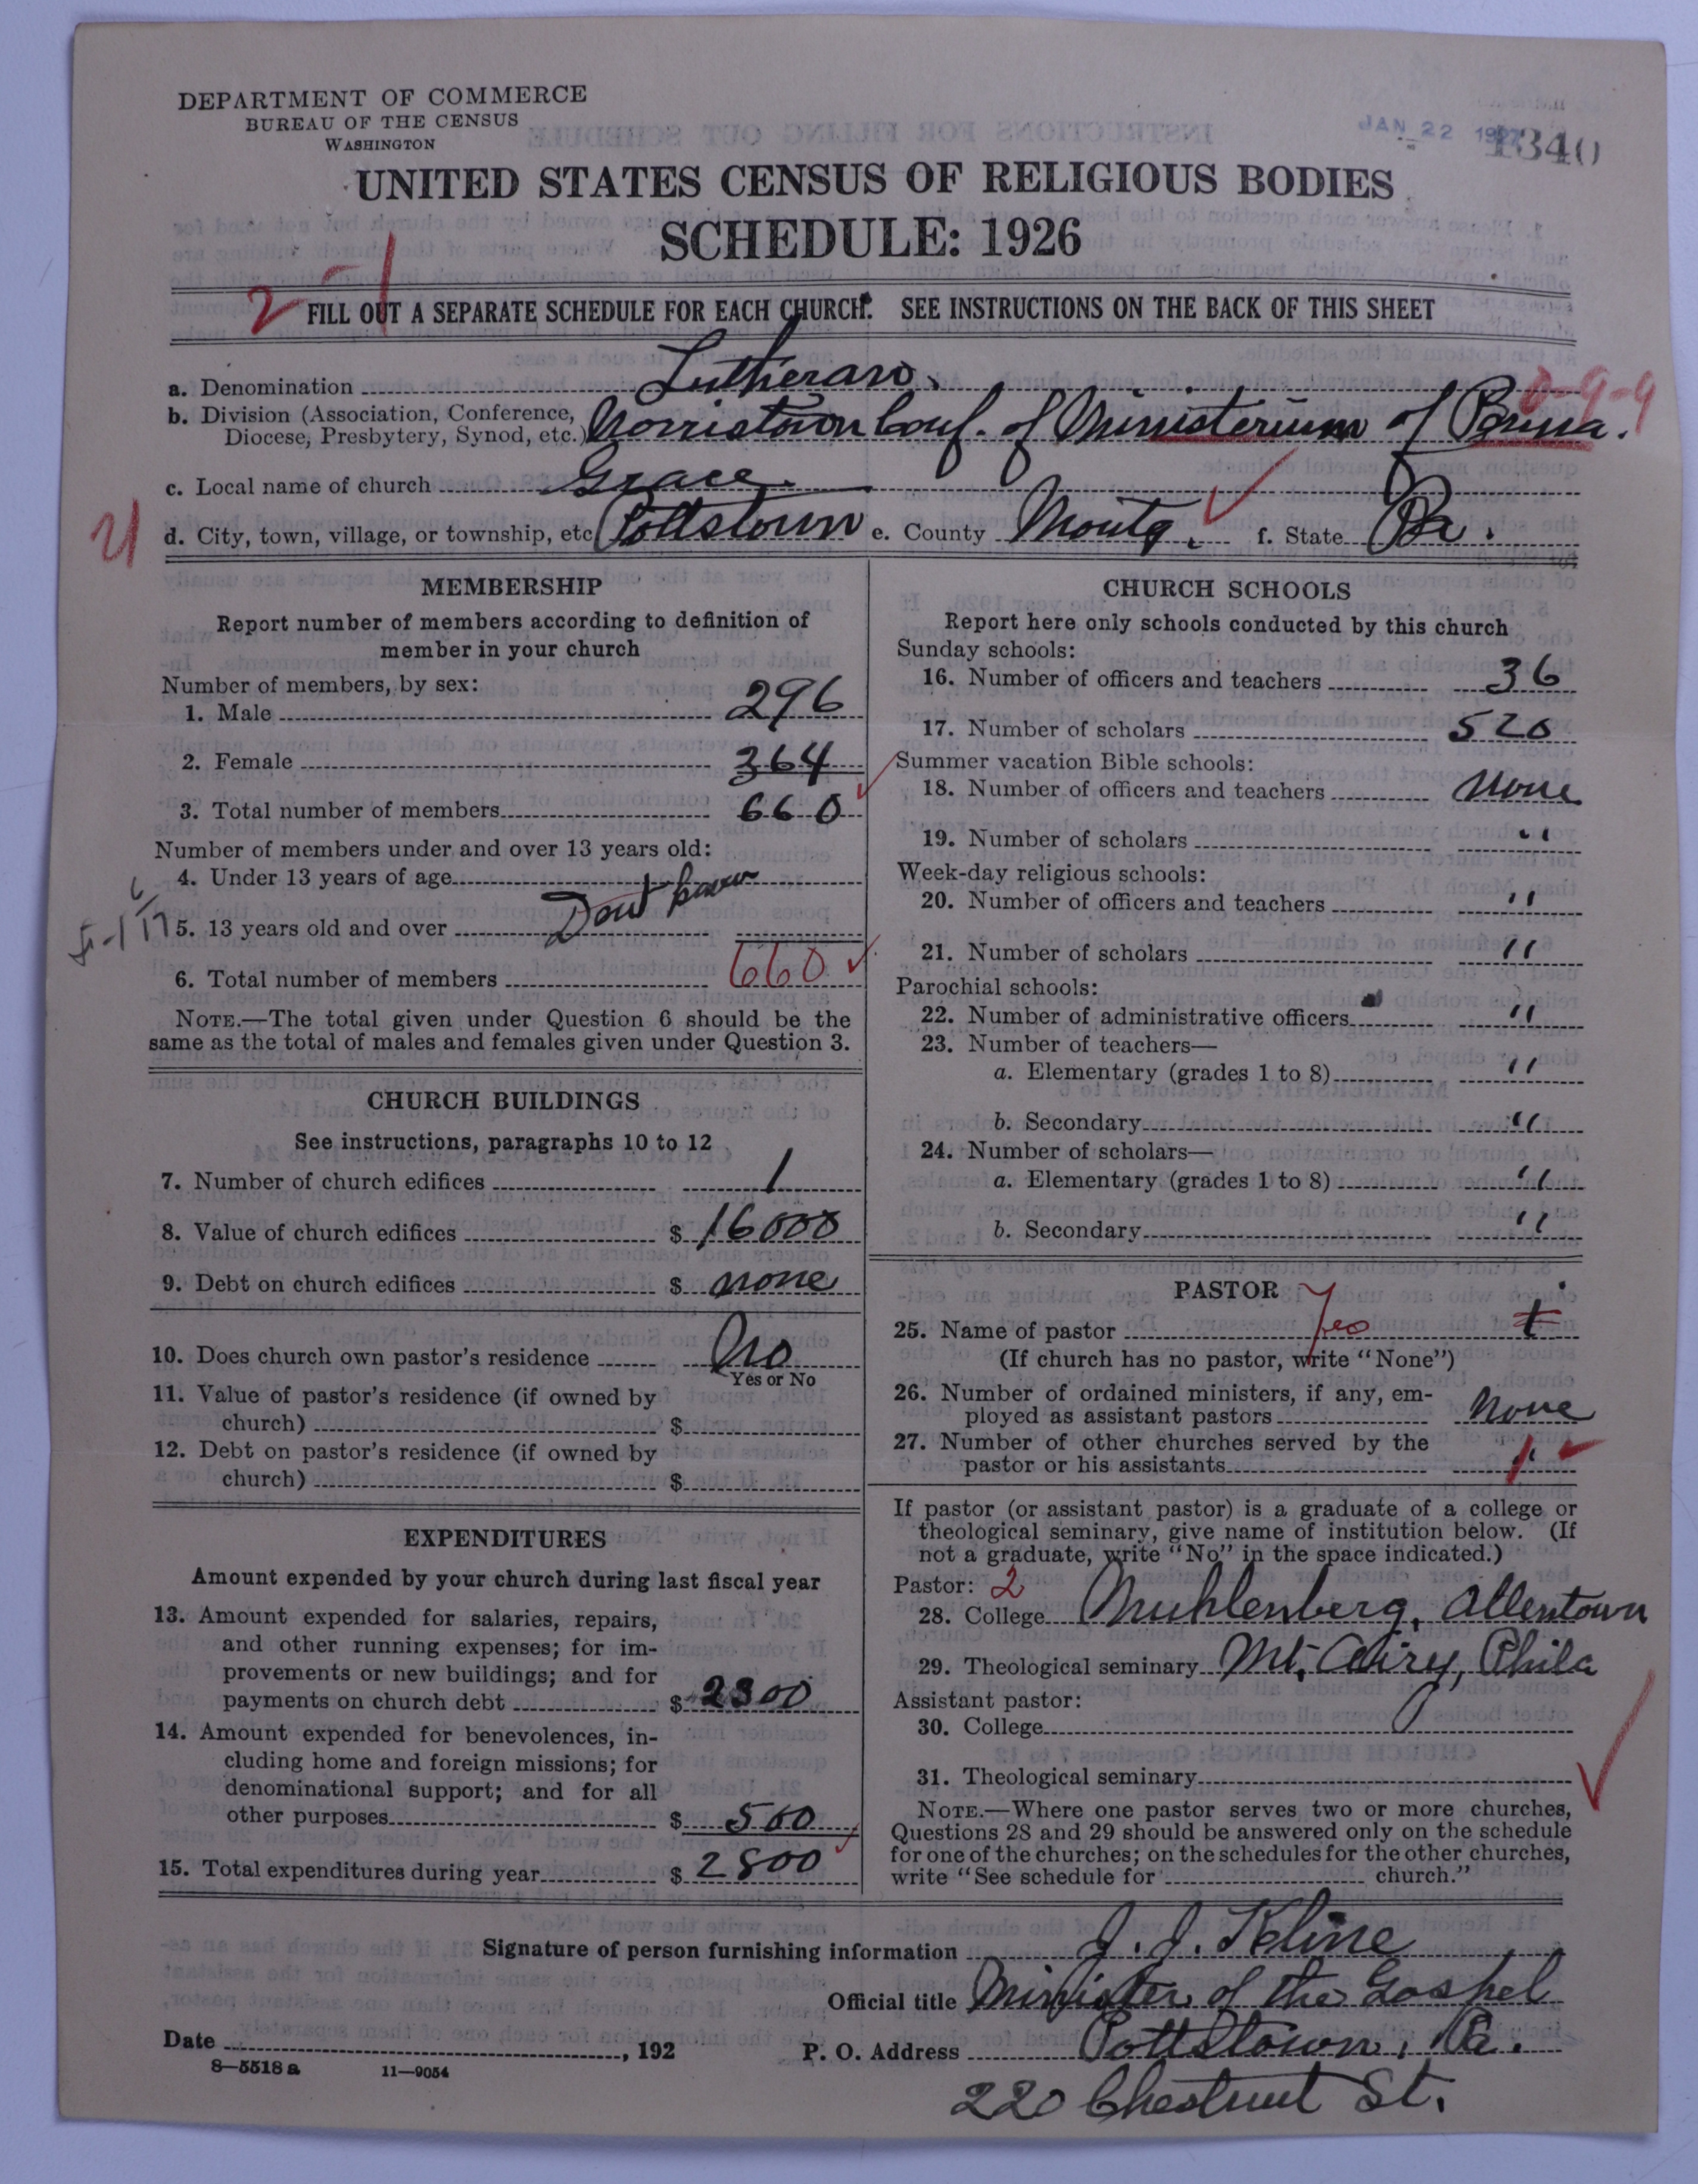 DEPARTMENT OF COMMERCE
BUREAU OF THE CENSUS
WASHINGTON
JAN 22 1927
1340
UNITED STATES CENSUS OF RELIGIOUS BODIES
SCHEDULE: 1926
2-1
FILL OUT A SEPARATE SCHEDULE FOR EACH CHURCH. SEE INSTRUCTIONS ON THE BACK OF THIS SHEET
a. Denomination Lutheran.
0-9-9
b. Division (Association, Conference, Diocese, Presbytery, Synod, etc.) Norristown Conf. of Ministerium of Penna.
c. Local name of church Grace
21
d. City, town, village, or township, etc Pottstown e. County Montg. f. State Pa.
MEMBERSHIP
Report number of members according to definition of
member in your church
Number of members, by sex:
1. Male 296
2. Female 364
3. Total number of members 660
Number of members under and over 13 years old:
4. Under 13 years of age
Dont know
5. 13 years old and over
6. Total number of members 660
NOTE.—The total given under Question 6 should be the
same as the total of males and females given under Question 3.
CHURCH BUILDINGS
See instructions, paragraphs 10 to 12
7. Number of church edifices 1
8. Value of church edifices $ 16000
9. Debt on church edifices $ none
10. Does church own pastor's residence No
Yes or No
11. Value of pastor's residence (if owned by
church) $
12. Debt on pastor's residence (if owned by
church) $
EXPENDITURES
Amount expended by your church during last fiscal year
13. Amount expended for salaries, repairs,
and other running expenses; for im-
provements or new buildings; and for
payments on church debt $ 2300
14. Amount expended for benevolences, in-
cluding home and foreign missions; for
denominational support; and for all
other purposes $ 500
15. Total expenditures during year $ 2800
CHURCH SCHOOLS
Report here only schools conducted by this church
Sunday schools:
16. Number of officers and teachers 36
17. Number of scholars 520
Summer vacation Bible schools:
18. Number of officers and teachers none
19. Number of scholars "
Week-day religious schools:
20. Number of officers and teachers "
21. Number of scholars "
Parochial schools:
22. Number of administrative officers "
23. Number of teachers—
a. Elementary (grades 1 to 8) "
b. Secondary "
24. Number of scholars—
a. Elementary (grades 1 to 8) "
b. Secondary "
PASTOR
25. Name of pastor
(If church has no pastor, write "None")
26. Number of ordained ministers, if any, em-
ployed as assistant pastors none
27. Number of other churches served by the
pastor or his assistants 1
If pastor (or assistant pastor) is a graduate of a college or
theological seminary, give name of institution below. (If
not a graduate, write "No" in the space indicated.)
Pastor: 2
28. College Muhlenberg, Allentown
29. Theological seminary Mt. Airy, Phila
Assistant pastor:
30. College
31. Theological seminary
NOTE.—Where one pastor serves two or more churches,
Questions 28 and 29 should be answered only on the schedule
for one of the churches; on the schedules for the other churches,
write "See schedule for church."
Signature of person furnishing information J. J. Kline
Official title Minister of the Gospel
Date , 192
P. O. Address Pottstown, Pa.
220 Chestnut St.
8—5518 a 11—9054